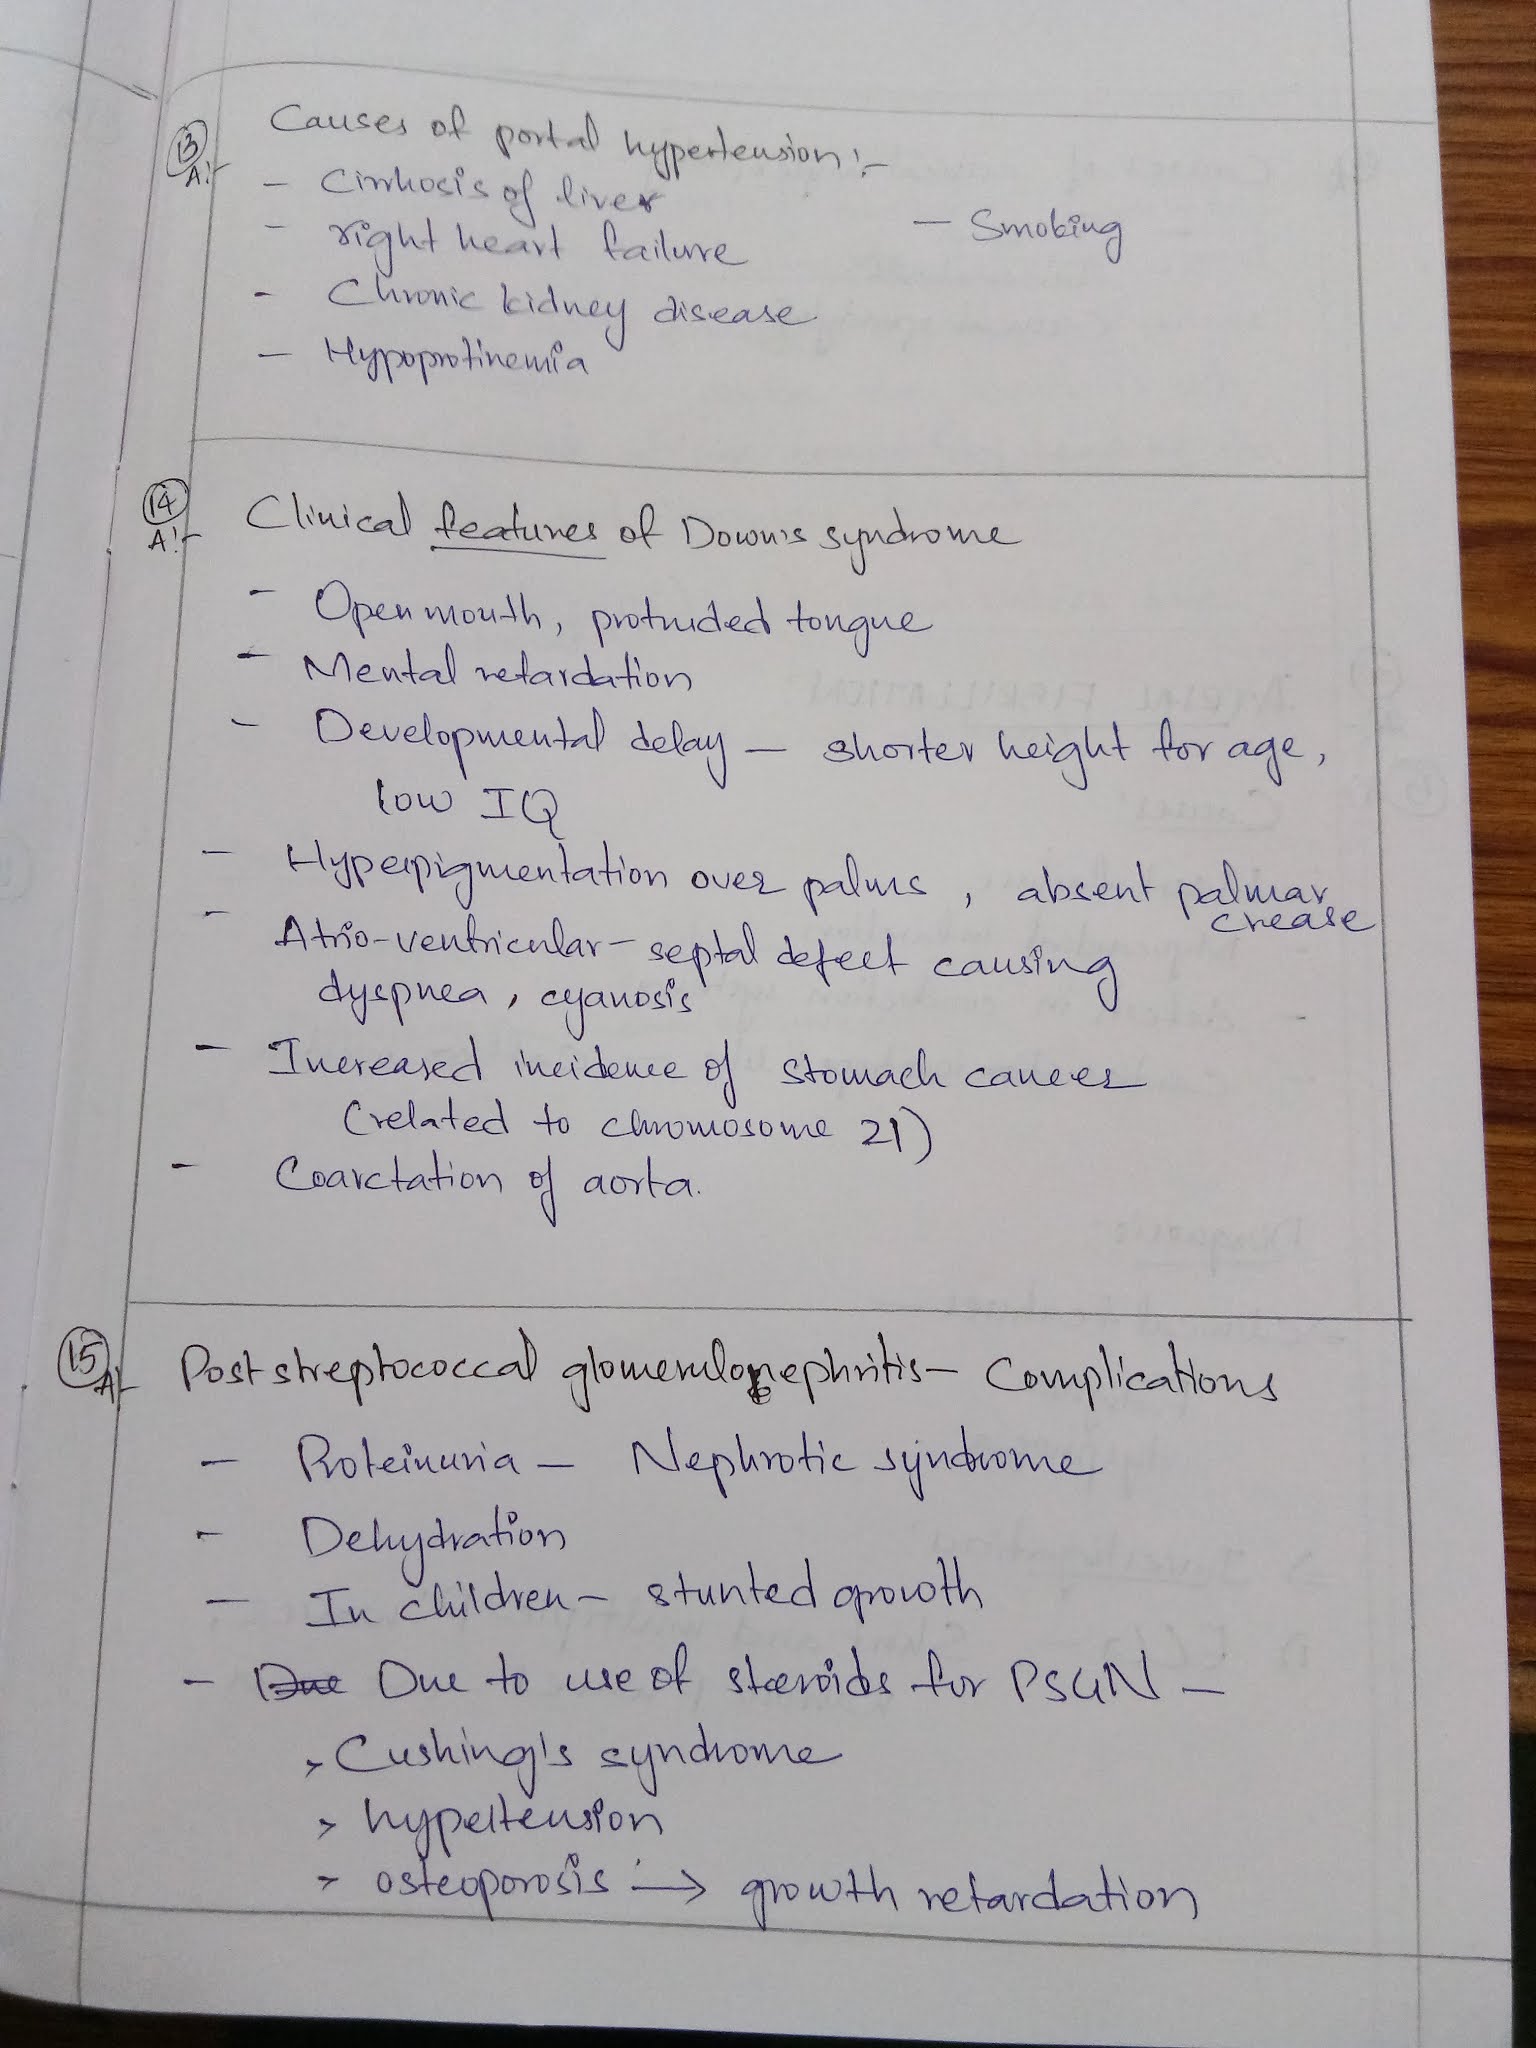 13 A:- Causes of portal hypertension:-
- Cirrhosis of liver
- right heart failure
- Smoking
- Chronic kidney disease
- Hypoprotinemia
14 A:- Clinical features of Down's syndrome
- Open mouth, protruded tongue
- Mental retardation
- Developmental delay - shorter height for age,
low IQ
- Hyperpigmentation over palms, absent palmar
crease
- Atrio-ventricular-septal defect causing
dyspnea, cyanosis
- Increased incidence of stomach cancer
(related to chromosome 21)
- Coarctation of aorta.
15 A:- Post streptococcal glomerulonephritis - Complications
- Proteinuria - Nephrotic syndrome
- Dehydration
- In children - stunted growth
- Due Due to use of steroids for PSGN -
> Cushing's syndrome
> hypertension
> osteoporosis → growth retardation